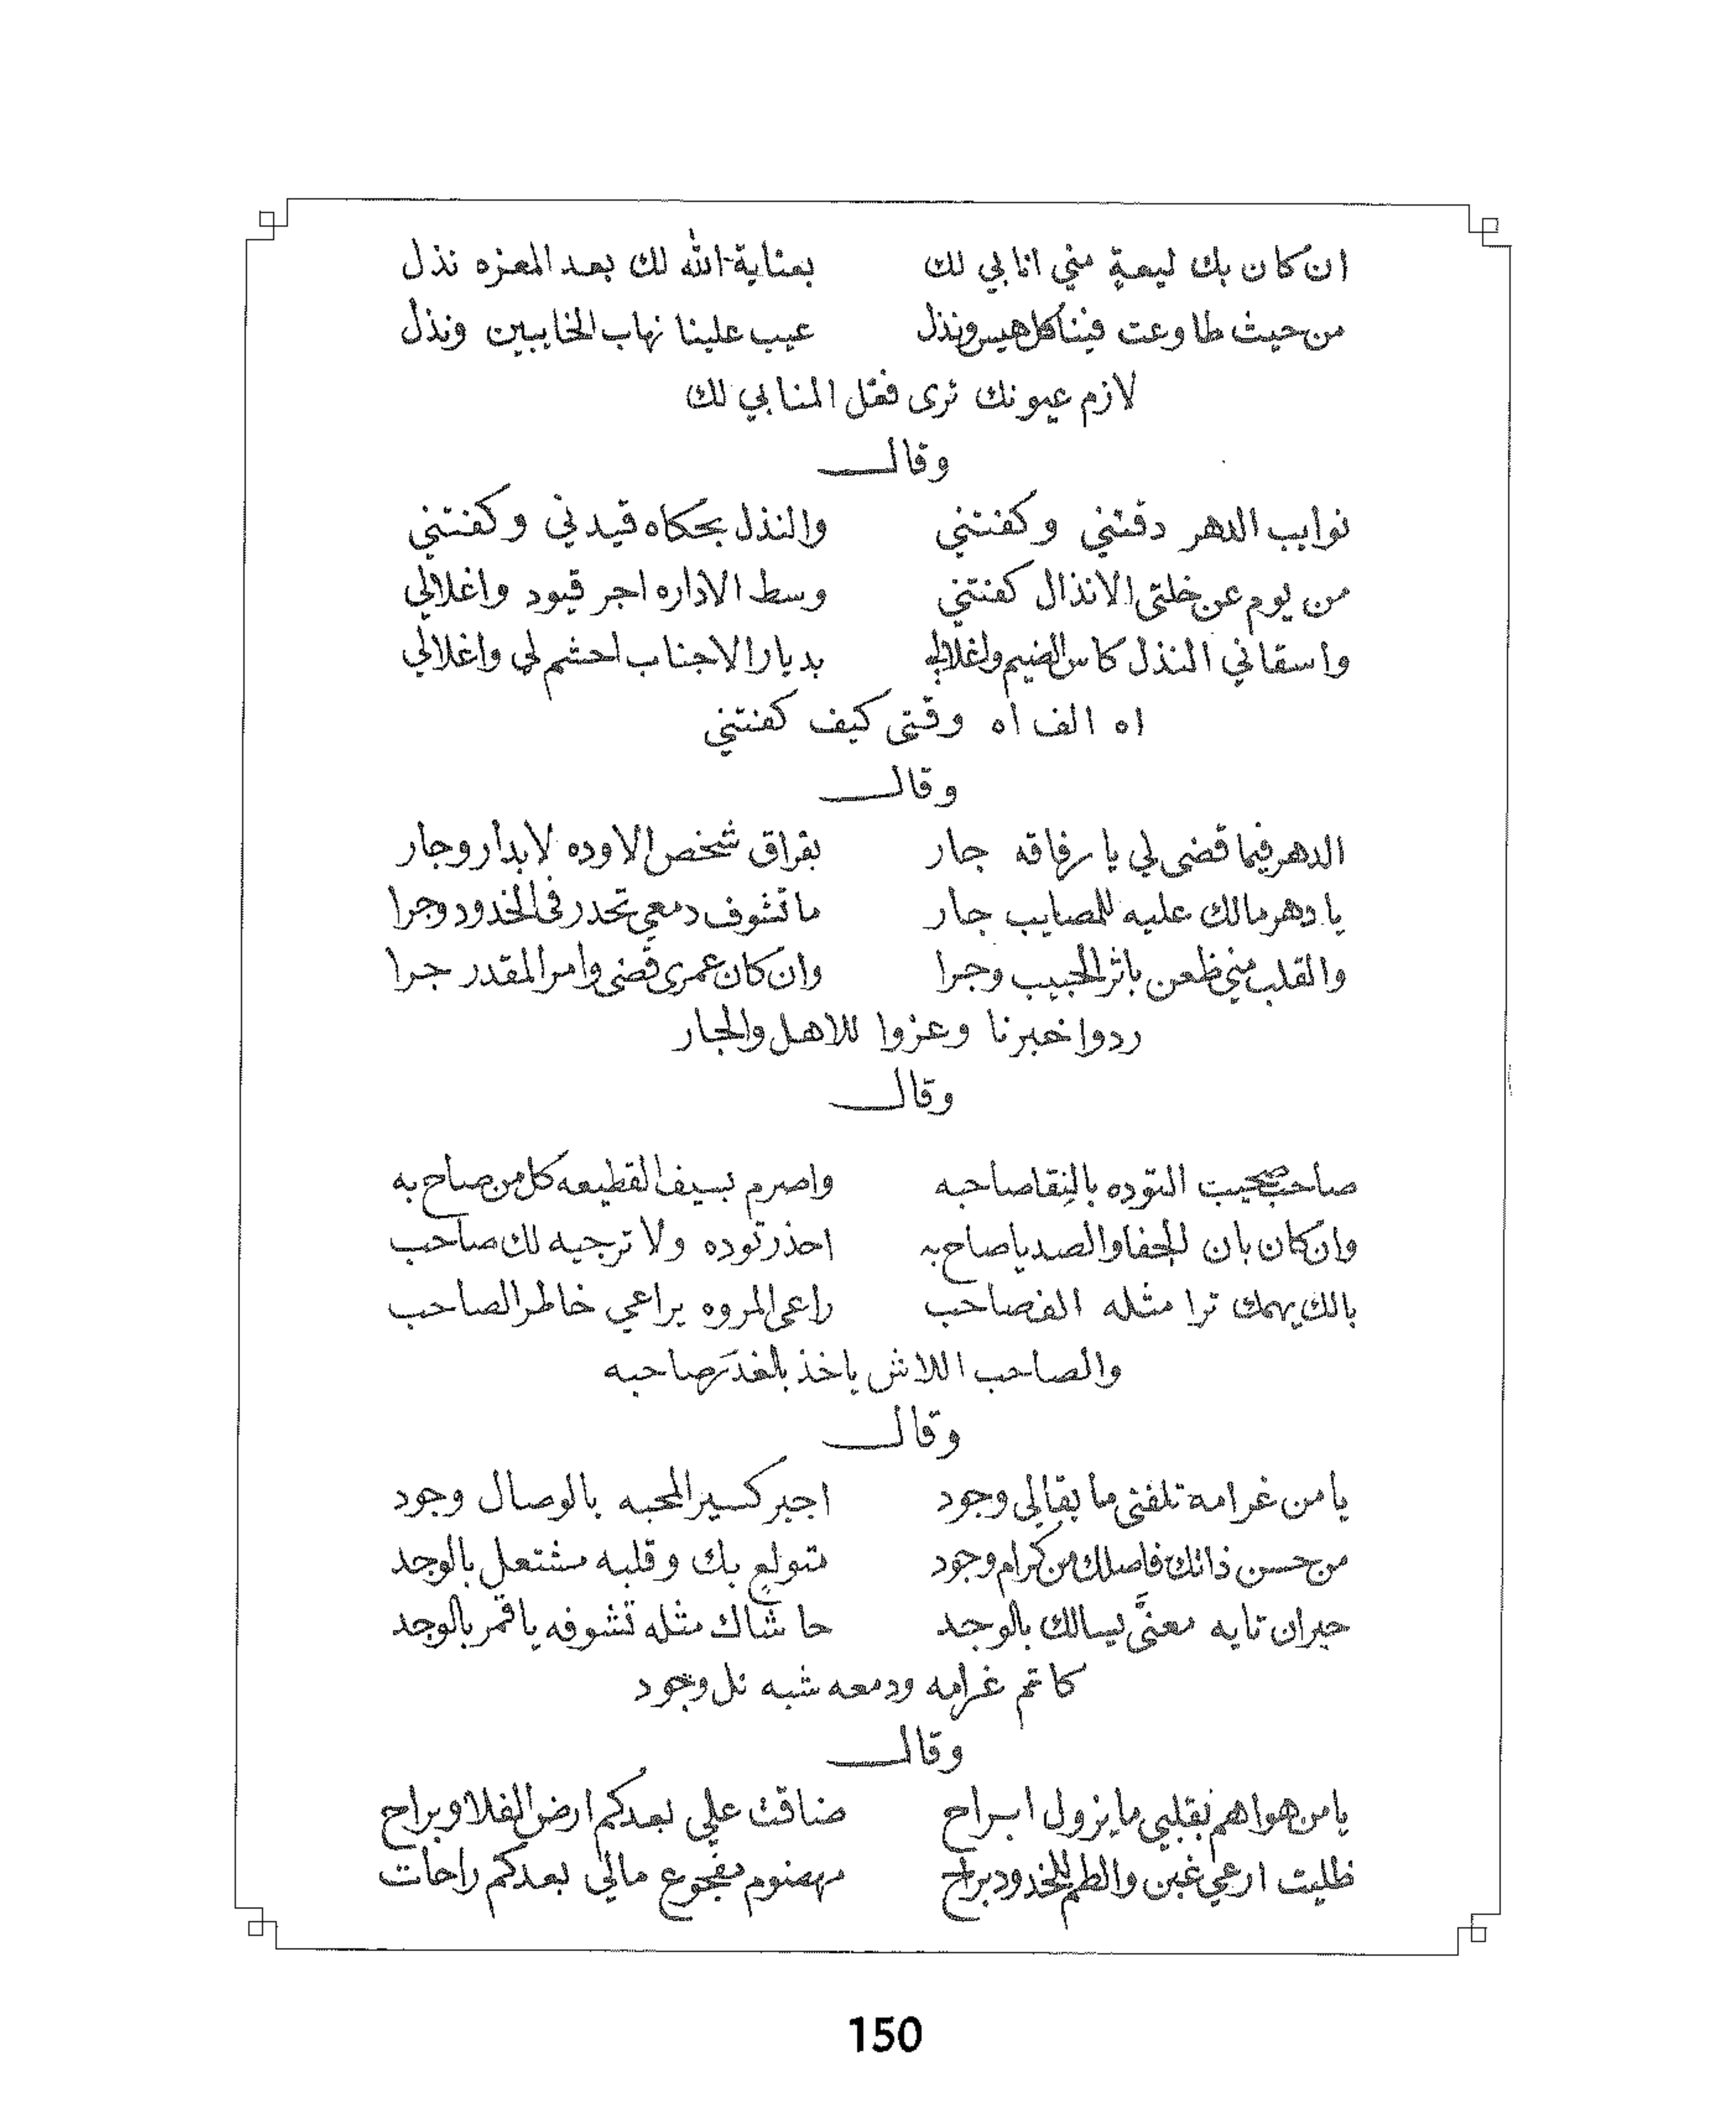 ان كان بك ليعةٍ مني انابي لك    بعناية الله لك بعد المعزه نذل
من حيث طاوعت فينا كل هيس ونذل    عيب علينا نهاب الخايبين ونذل
لازم عيونك ترى فعل المنابي لك
وقال
نوايب الدهر دقتني وكفنتني    والنذل بحكاه قيدني وكفنتني
من يوم عن خلتى الانذال كفنتني    وسط الاداره اجر قيود واغلالي
واسقاني النذل كاس الضيم واغلالي    بديار الاجناب احشم لي واغلالي
اه الف اه وقتى كيف كفنتني
وقال
الدهر فيما قضى لي يا رفاقه جار    بفراق شخص الاوده لا بدار وجار
يا دهر مالك عليه للمصايب جار    ما تشوف دمعي تحدر في الخدود وجرا
والقلب مني ظعن باثر الحبيب وجرا    وان كان عمرى قضى وامر المقدر جرا
ردوا خبرنا وعزوا للاهل والجار
وقال
صاحب التوده بالنقا صاحبه    واصرم بسيف القطيعه كل من صاح به
وان كان بان الجفا والصد يا صاح به    احذر توده ولا ترجيه لك صاحب
بالك يهمك ترا مثله الف صاحب    راعى المروه يراعي خاطر الصاحب
والصاحب اللاش ياخذ بالغدر صاحبه
وقال
يا من غرامه تلفني ما بقالي وجود    اجبر كسير المحبه بالوصال وجود
من حسن ذاتك فاصلك من كرام وجود    متولعٍ بك وقلبه مشتعل بالوجد
حيران تايه معنَّى يسالك بالوجد    حاشاك مثله تشوفه يا قمر بالوجد
كاتم غرامه ودمعه شبه نل وجود
وقال
يا من هواهم بقلبي ما يزول ابراح    ضاقت علي بعدكم ارض الفلا وبراح
ظليت ارعي غبن والطم للخدود براح    مهضوم مفجوع مالي بعدكم راحات
150